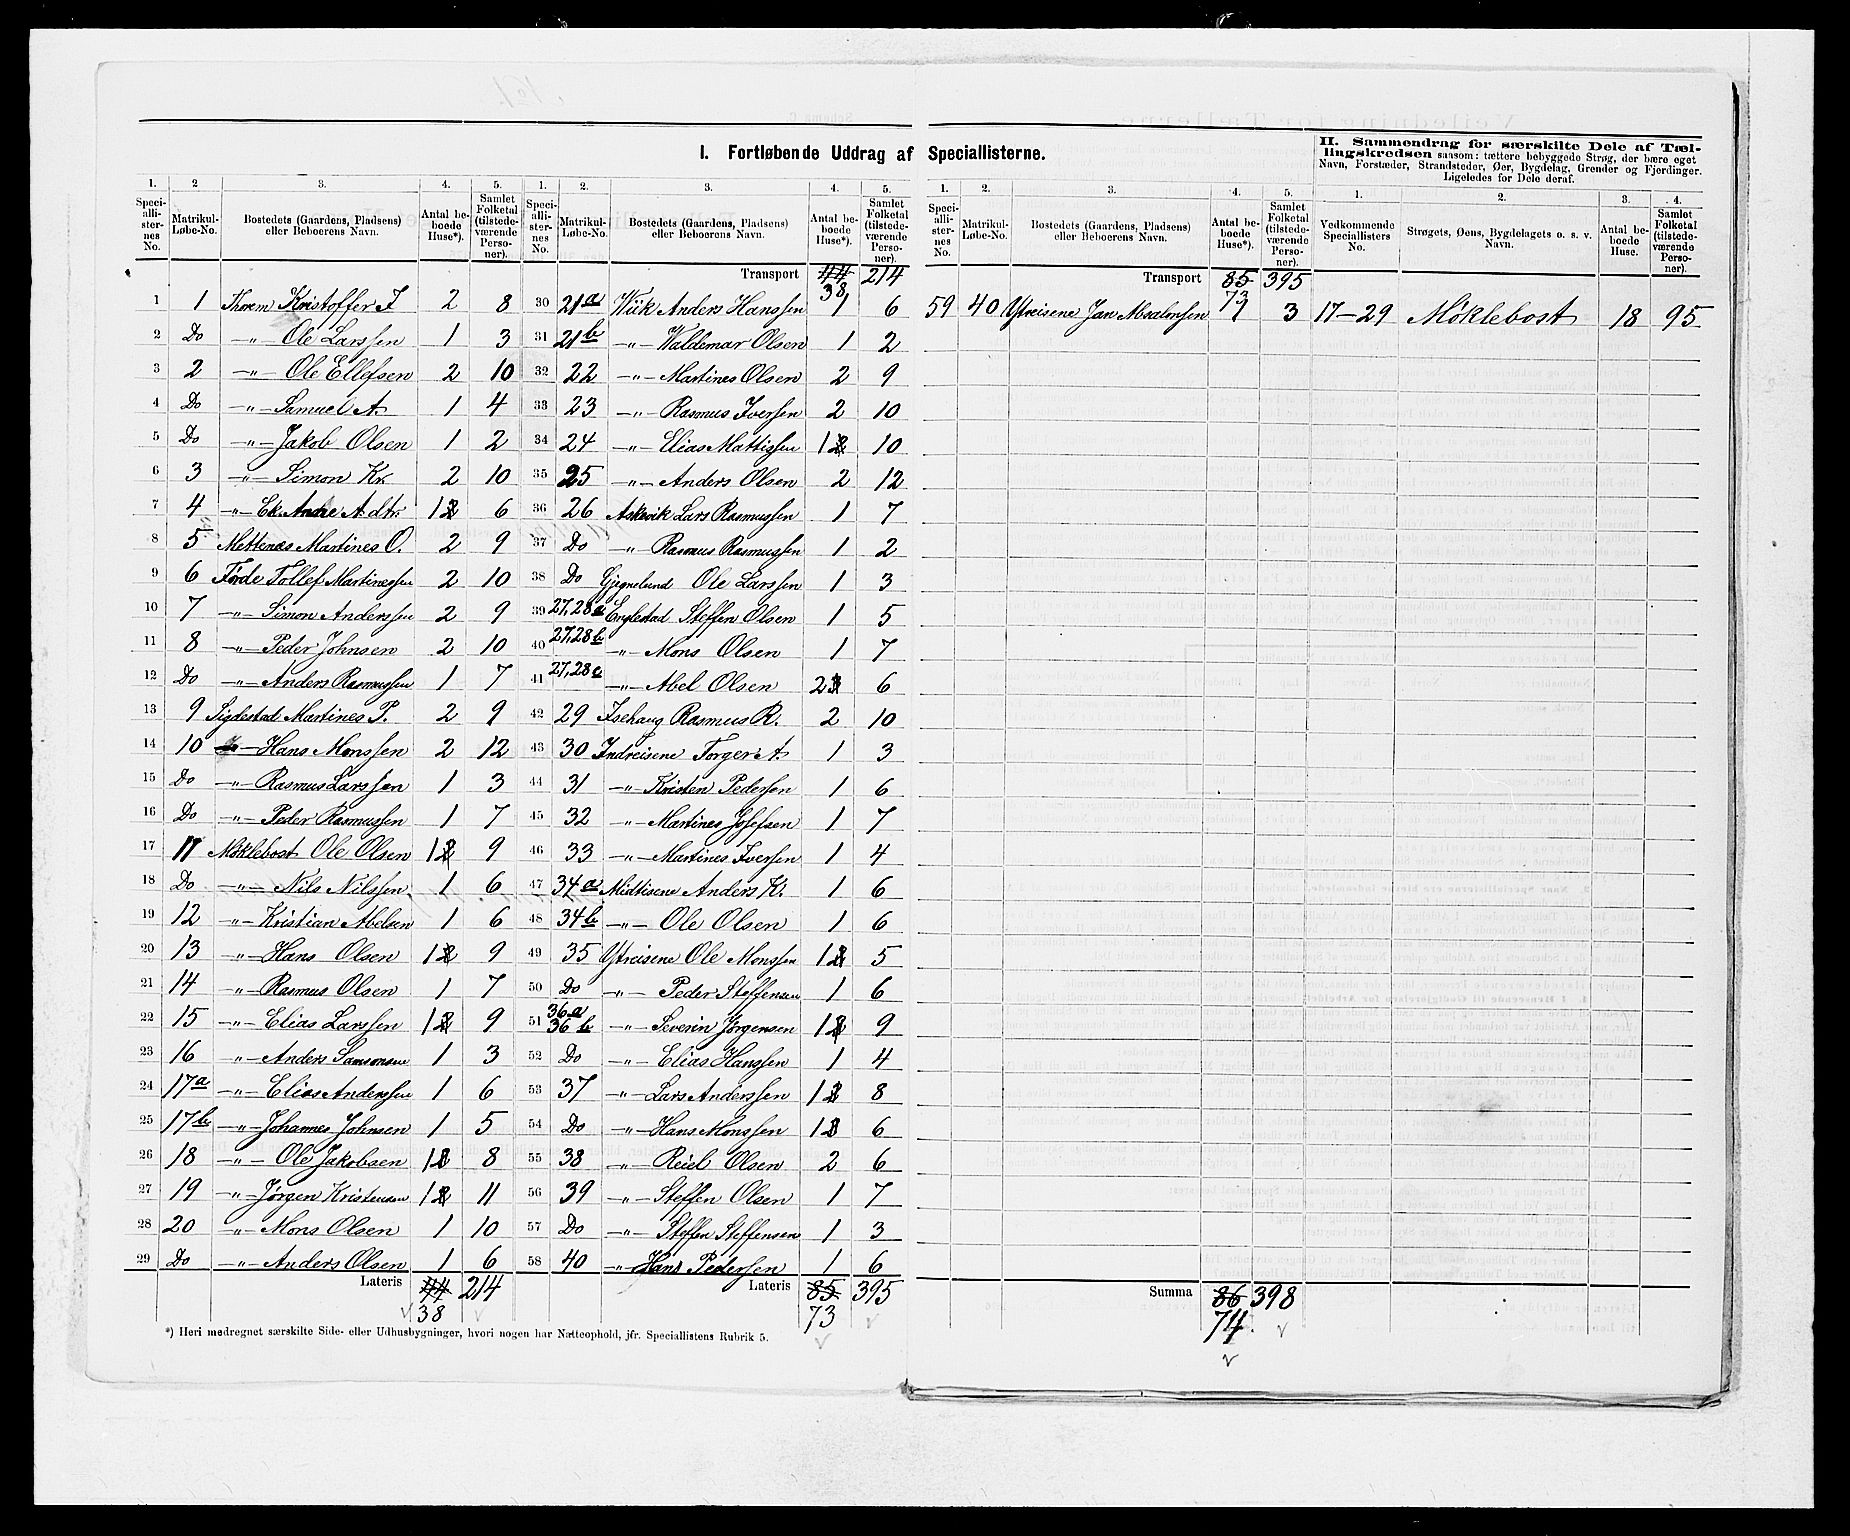 I. Fortløbende Uddrag af Speciallisterne.
1. 2 3. 4. 5.
Speciallisternes No. Matrikul-Løbe-No. Bostedets (Gaardens, Pladsens) eller Beboerens Navn. Antal beboede Huse*). Samlet Folketal (tilstedeværende Personer).
1 1 Thvem Kristoffer I 2 8
2 Do —„— Ole Larssen 1 3
3 2 —„— Ole Ellefsen 2 10
4 Do —„— Samuel A. 1 4
5 Do —„— Jakob Olsen 1 2
6 3 —„— Simon Kr. 2 10
7 4 —„— Ek. Andre A.dtr. 1 6
8 5 Mettenæs Martines O. 2 9
9 6 Førde Tollef Martinessen 2 10
10 7 —„— Simon Anderssen 2 9
11 8 —„— Peder Johnsen 2 10
12 Do —„— Anders Rasmussen 1 7
13 9 Sigdestad Martines P. 2 9
14 10 —„— Hans Monssen 2 12
15 Do —„— Rasmus Larssen 1 3
16 Do —„— Peder Rasmussen 1 7
17 11 Møklebost Ole Olsen 1 9
18 Do —„— Nils Nilssen 1 6
19 12 —„— Kristian Abelsen 1 6
20 13 —„— Hans Olsen 1 9
21 14 —„— Rasmus Olsen 1 7
22 15 —„— Elias Larssen 1 9
23 16 —„— Anders Samsonsen 1 3
24 17a —„— Elias Anderssen 1 6
25 17b —„— Johannes Johnsen 1 5
26 18 —„— Ole Jakobsen 1 8
27 19 —„— Jørgen Kristensen 1 11
28 20 —„— Mons Olsen 1 10
29 Do —„— Anders Olsen 1 6
Lateris 44 214
38
*) Heri medregnet særskilte Side- eller Udhusbygninger, hvori nogen har Natteophold, jfr. Speciallistens Rubrik 5.
1. 2. 3. 4. 5.
Speciallisternes No. Matrikul-Løbe-No. Bostedets (Gaardens, Pladsens) eller Beboerens Navn. Antal beboede Huse*). Samlet Folketal (tilstedeværende Personer).
Transport 44 214
38
30 21a Wiik Anders Hanssen 1 6
31 21b —„— Waldemar Olsen 1 2
32 22 —„— Martines Olsen 2 9
33 23 —„— Rasmus Iverssen 2 10
34 24 —„— Elias Mattissen 1 10
35 25 —„— Anders Olsen 2 12
36 26 Askevik Lars Rasmussen 1 7
37 Do —„— Rasmus Rasmussen 1 2
38 Do Gjegnelund Ole Larssen 1 3
39 27,28a Englestad Steffen Olsen 1 5
40 27,28b —„— Mons Olsen 1 7
41 27,28c —„— Abel Olsen 2 6
42 29 Isehaug Rasmus R. 2 10
43 30 Indreisene Torger A. 1 3
44 31 —„— Kristen Pedersen 1 6
45 32 —„— Martines Josefsen 1 7
46 33 —„— Martines Iverssen 1 4
47 34a Midtisene Anders K. 1 6
48 34b —„— Ole Olsen 1 6
49 35 Ytreisene Ole Monssen 1 5
50 Do —„— Peder Steffensen 1 6
51 36a 36b —„— Severin Jørgensen 1 9
52 Do —„— Elias Hanssen 1 4
53 37 —„— Lars Anderssen 1 8
54 Do —„— Hans Monssen 1 6
55 38 —„— Reiel Olsen 2 6
56 39 —„— Steffen Olsen 1 7
57 Do —„— Steffen Steffensen 1 3
58 40 —„— Hans Pederssen 1 6
Lateris 85 395
73
1. 2. 3. 4. 5.
Speciallisternes No. Matrikul-Løbe-No. Bostedets (Gaardens, Pladsens) eller Beboerens Navn. Antal beboede Huse*). Samlet Folketal (tilstedeværende Personer).
Transport 85 395
73
59 40 Ytreisene Jan Absalonsen 1 3
Summa 86 398
74.
II. Sammendrag for særskilte Dele af Tællingskredsen saasom: tættere bebyggede Strøg, der bære eget Navn, Forstæder, Strandsteder, Øer, Bygdelag, Grender og Fjerdinger. Ligeledes for Dele deraf.
1. 2. 3. 4.
Vedkommende Speciallisters No. Strøgets, Øens, Bygdelagets o. s. v. Navn. Antal beboede Huse. Samlet Folketal (tilstedeværende Personer).
17–29 Møklebost 18 95